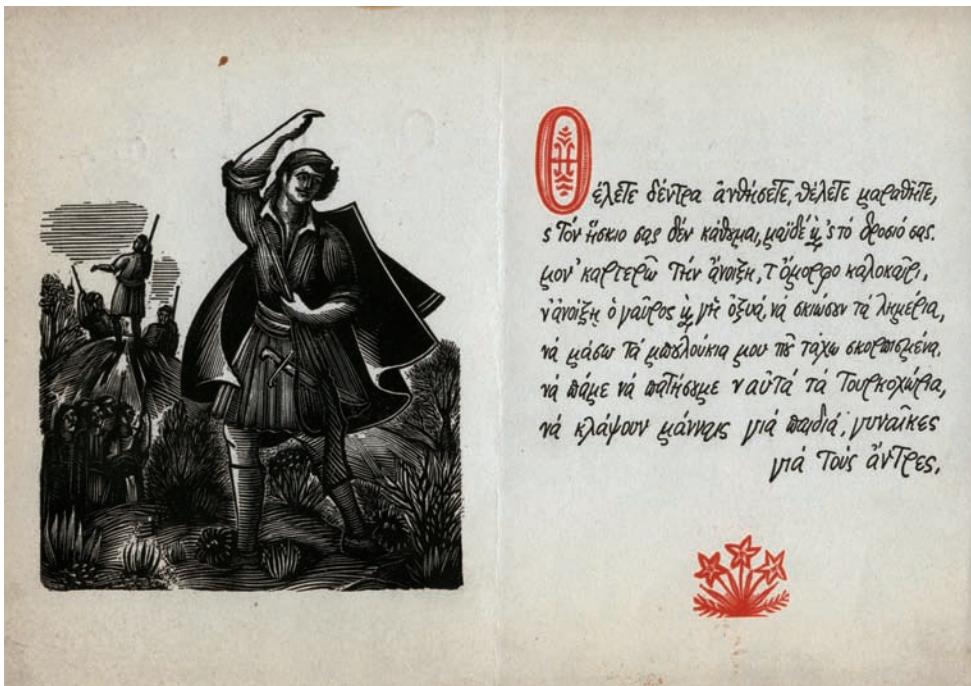 Θέλετε δέντρα ἀνθήσετε, θέλετε μαραθῆτε,
ς τὸν ἥσκιο σας δὲν κάθομαι, μαϊδὲ ϗ ’ς τὸ δροσιό σας.
μον’ καρτερῶ τὴν ἄνοιξη, τ’ ὄμορφο καλοκαῖρι,
ν’ ἀνοίξῃ ὁ γαῦρος ϗ γἡ ὀξυά, νὰ σκιώσουν τὰ λημέρια,
νὰ μάσω τὰ μπουλούκια μου ποῦ τάχω σκορπισμένα.
νὰ πάμε νὰ πατήσουμε ν αὐτὰ τὰ Τουρκοχώρια,
νὰ κλάψουν μάνναις γιὰ παιδιά, γυναῖκες
γιὰ τοὺς ἄντρες.